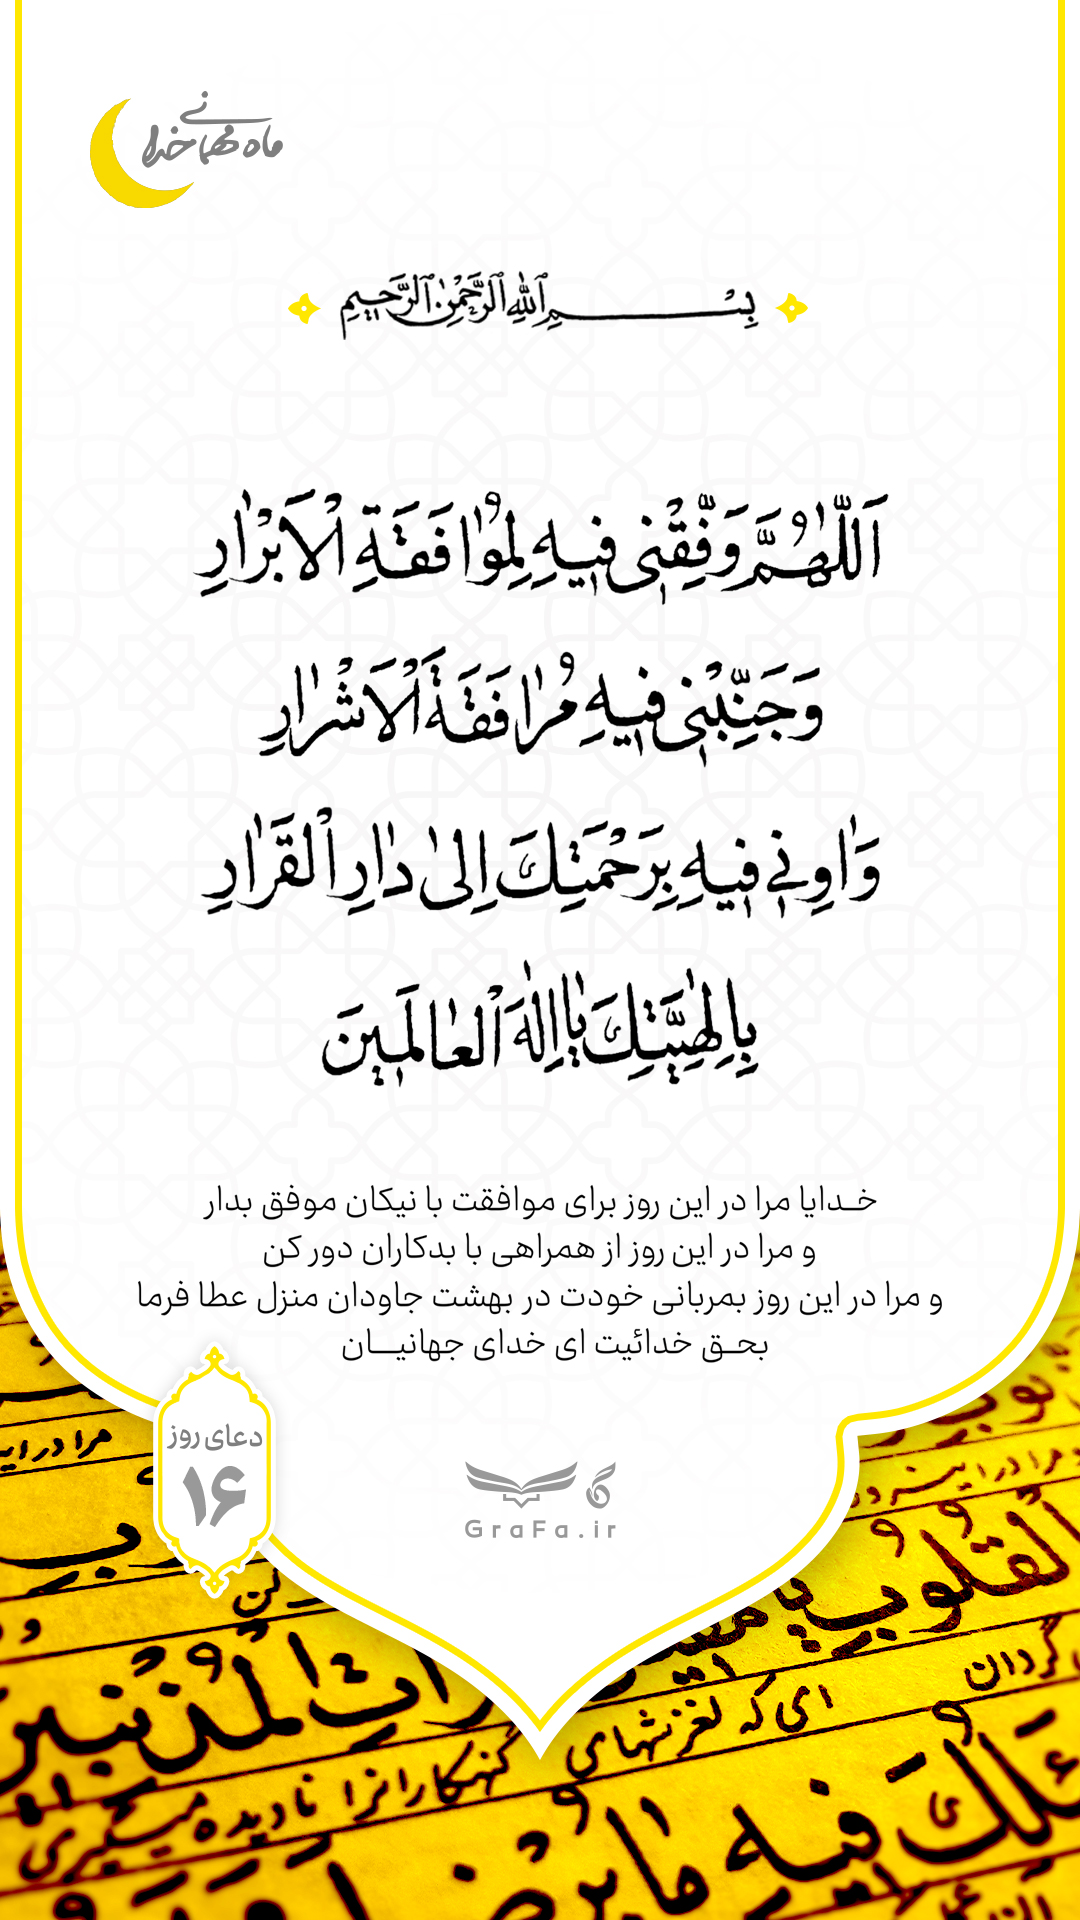 ماه مهمانی خدا
بِسْمِ ٱللّٰهِ ٱلرَّحْمٰنِ ٱلرَّحيمِ
اَللّٰهُمَّ وَفِّقْنى فيهِ لِمُوٰافَقَةِ الْاَبْرٰارِ
وَجَنِّبْنى فيهِ مُرٰافَقَةَ الْاَشْرٰارِ
وَاٰوِنى فيهِ بِرَحْمَتِكَ اِلىٰ دٰارِ الْقَرٰارِ
بِاِلٰهِيَّتِكَ يٰا اِلٰهَ الْعٰالَمينَ
خـدایا مرا در این روز برای موافقت با نیکان موفق بدار
و مرا در این روز از همراهی با بدکاران دور کن
و مرا در این روز بمربانی خودت در بهشت جاودان منزل عطا فرما
بحـق خدائیت ای خدای جهانیـــان
دعای روز
۱۶
GraFa.ir
مرا در این
مرا در این
الْقُلُوبِ
کن
گردان
الْمُذْنِبينَ
ای که لغزشهای گنهکارانرا نادیده میگیری
فيهِ مٰا